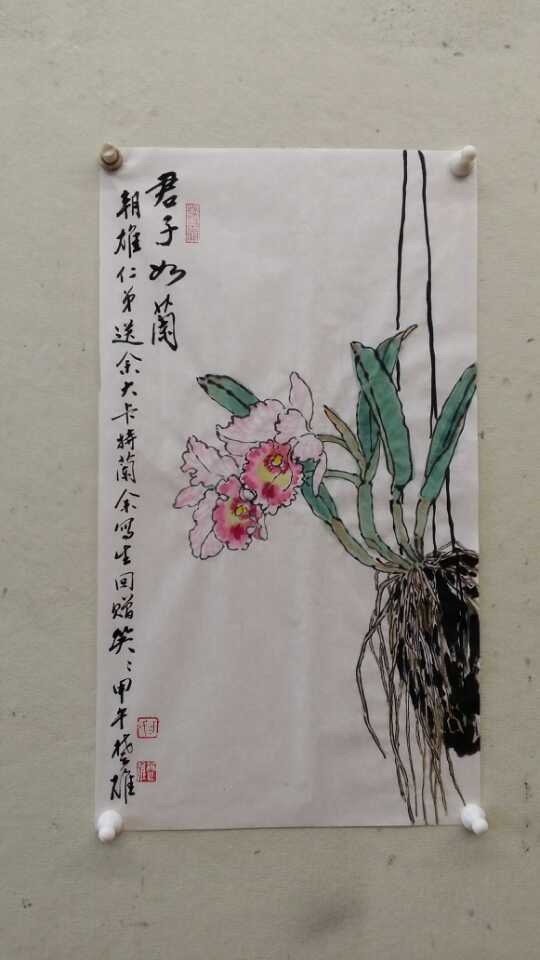 君子如蘭
朝雄仁弟送余大卡特蘭余写生回赠笑〻甲午楚雄